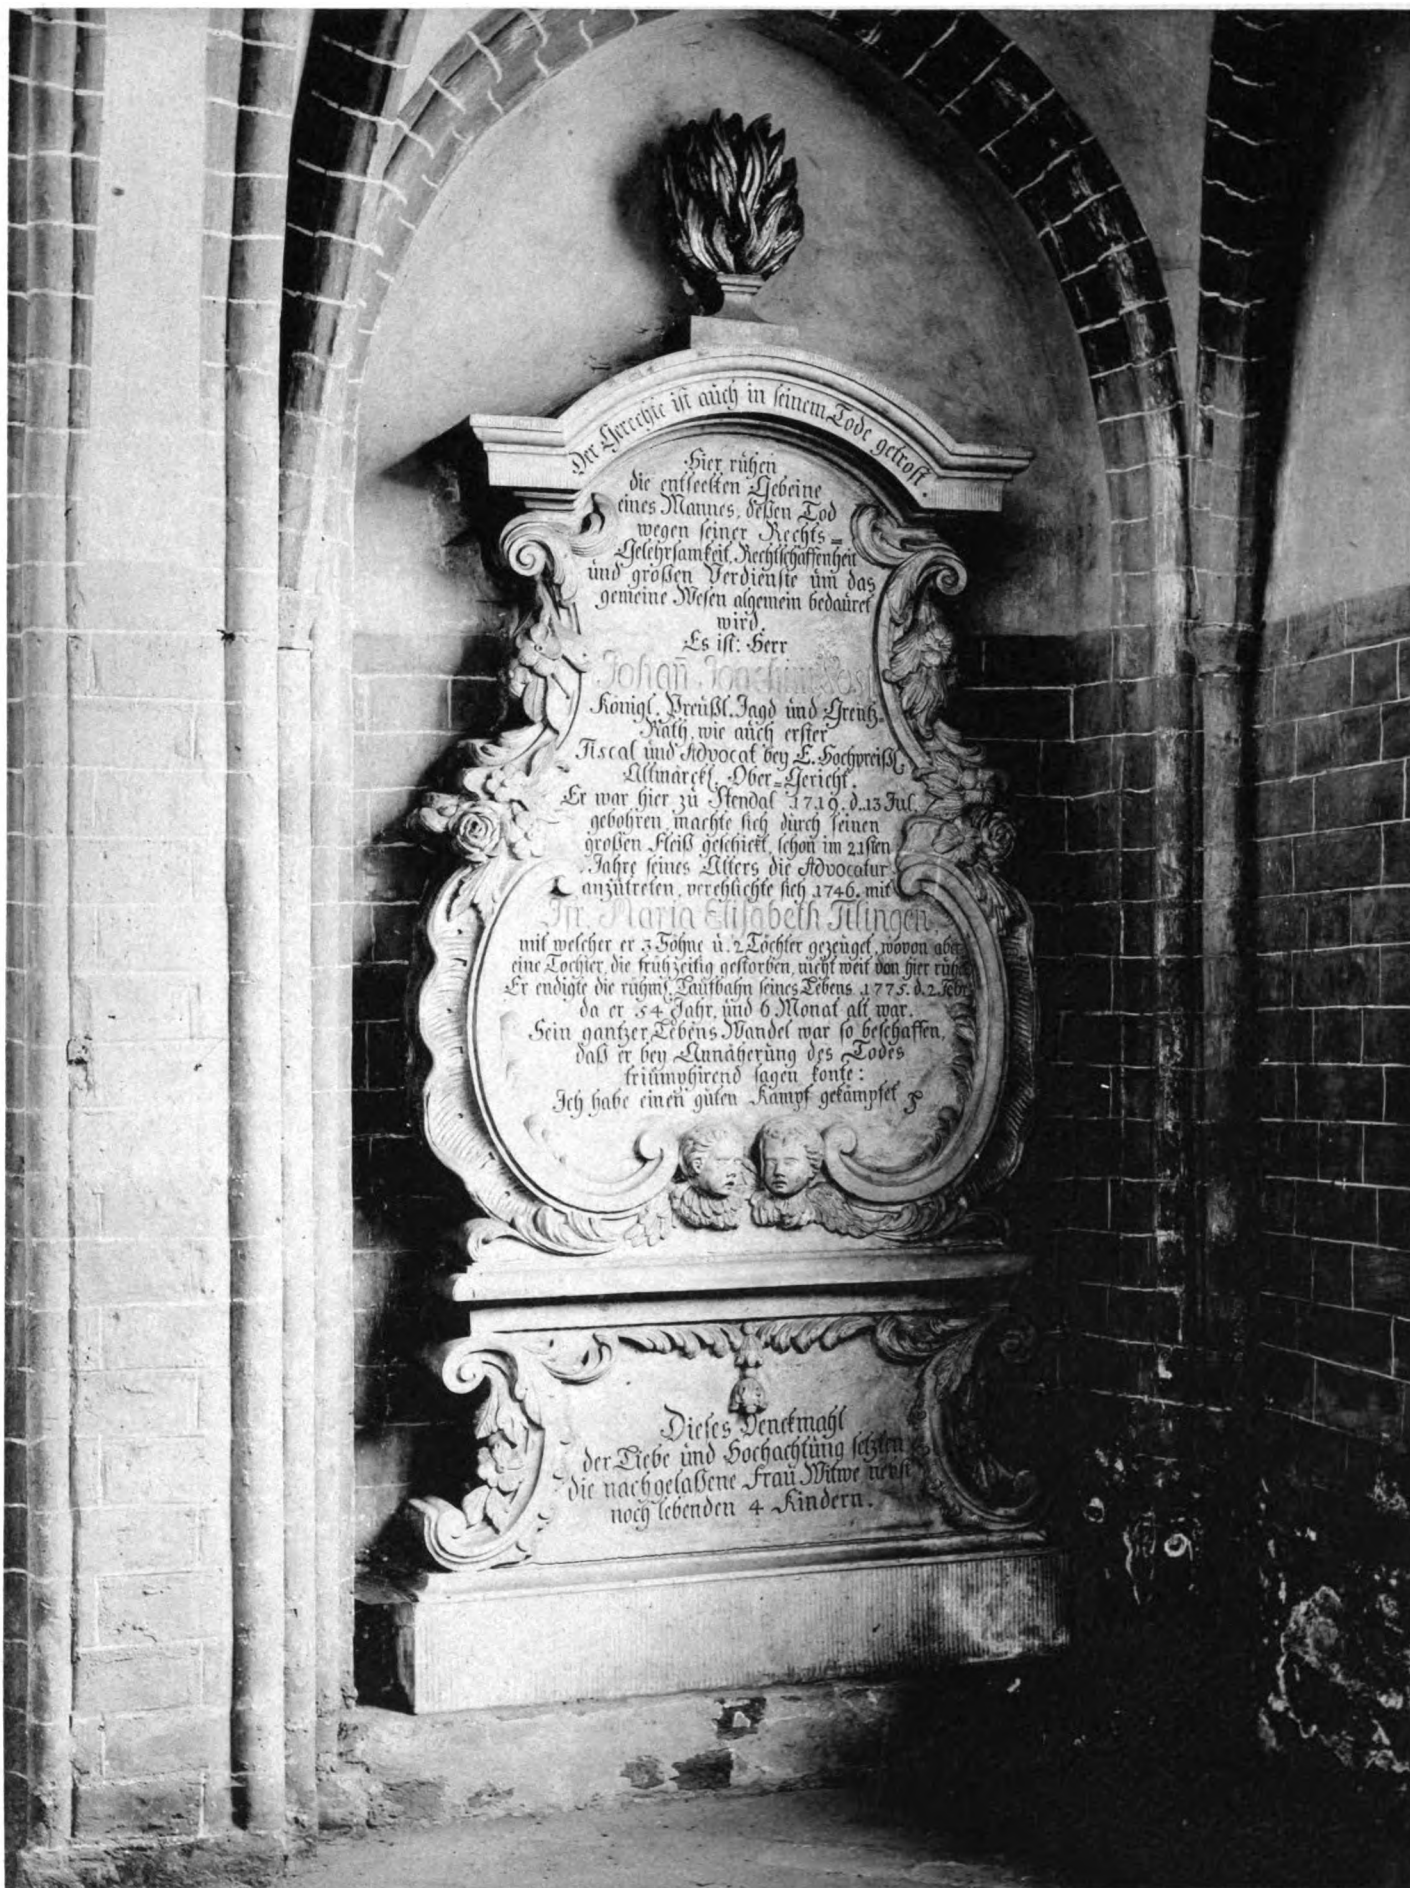 Der Gerechte ist auch in seinem Tode getrost.
Hier ruhen
die entseelten Gebeine
eines Mannes, deßen Tod
wegen seiner Rechts=
Gelehrsamkeit, Rechtschaffenheit
und großen Verdienste um das
gemeine Wesen algemein bedauret
wird.
Es ist: Herr
Johañ Joachim
Königl. Preußl. Jagd und Grentz-
Rath, wie auch erster
Fiscal und Advocat bey E. Hochpreißl.
Altmärckl. Ober=Gericht.
Er war hier zu Stendal 1719. d. 13 Jul.
gebohren, machte sich durch seinen
großen Fleiß geschickt, schon im 21sten
Jahre seines Alters die Advocatur
anzutreten, verehlichte sich 1746. mit
Jfr. Maria Elisabeth Tilingen,
mit welcher er 3 Söhne u. 2 Töchter gezeuget, wovon aber
eine Tochter, die frühzeitig gestorben, nicht weit von hier ruhet
Er endigte die rühml. Laufbahn seines Lebens 1775. d. 2 Febr.
da er 54 Jahr, und 6 Monat alt war.
Sein gantzer Lebens Wandel war so beschaffen,
daß er bey Annäherung des Todes
triumphirend sagen konte:
Ich habe einen guten Kampf gekämpfet
Dieses Denckmahl
der Liebe und Hochachtung setzten
die nachgelaßene Frau Witwe nebst
noch lebenden 4 Kindern.